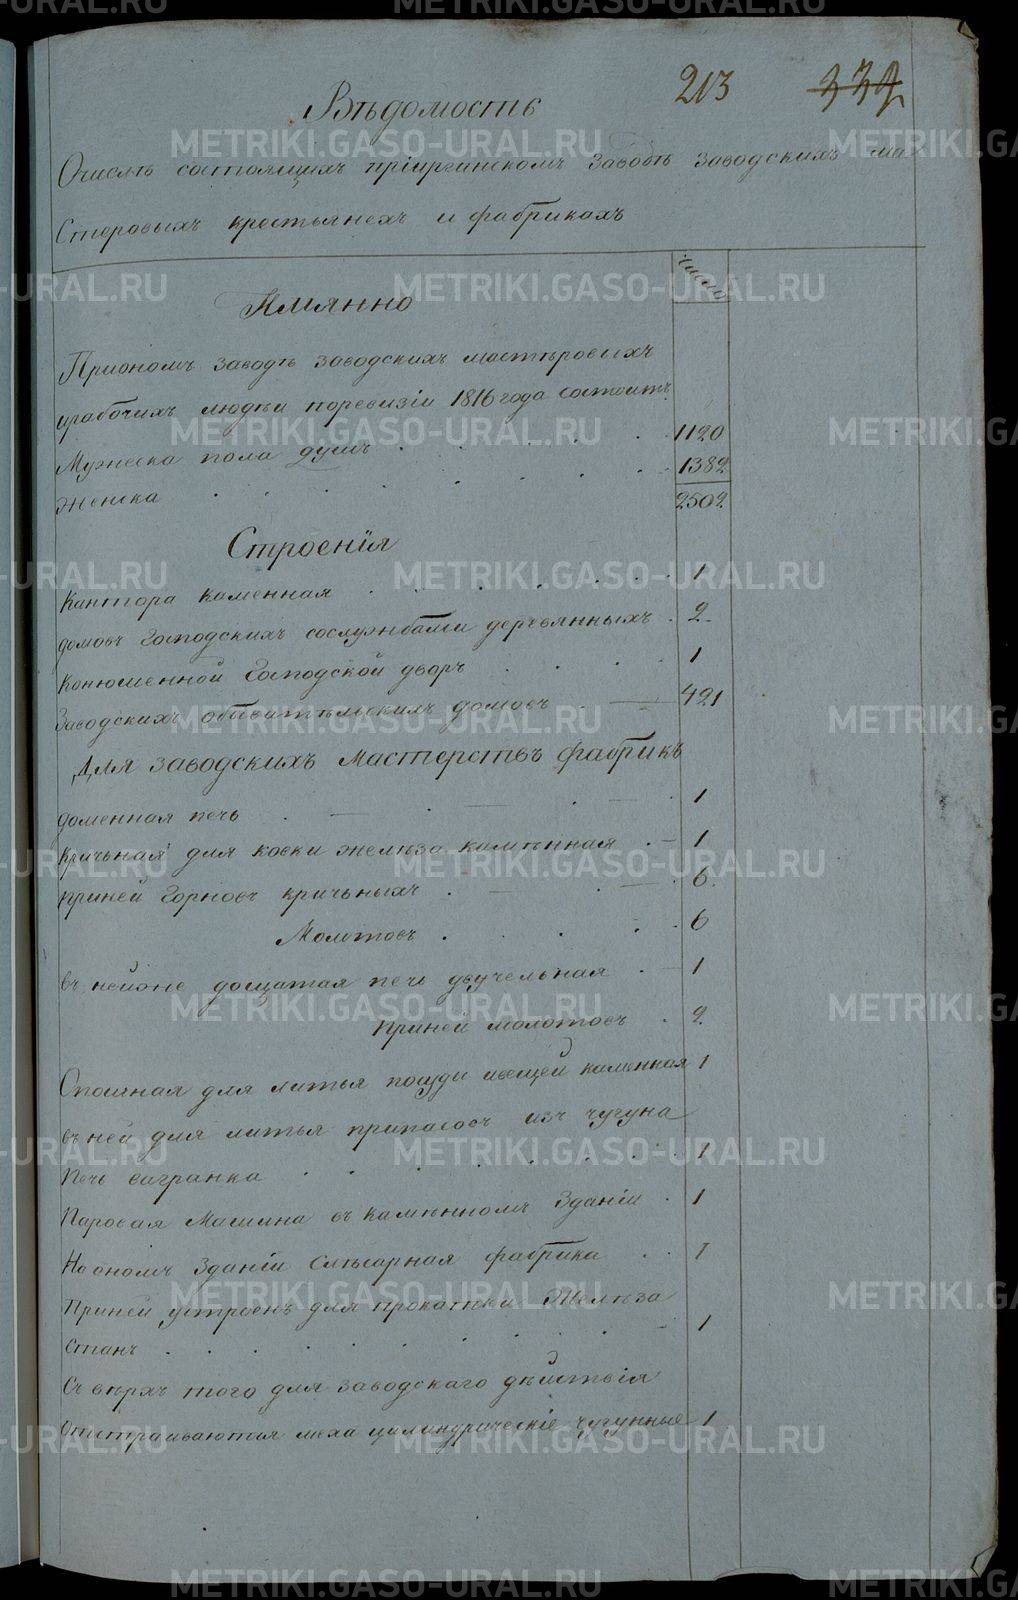 213 332
Вѣдомость
Очислѣ состоящихъ пріиргинскомъ заводѣ заводскихъ ма
стеровыхъ крестьянехъ и фабрикахъ
число
Имянно
Приономъ заводѣ заводскихъ мастѣровыхъ
ирабочихъ людѣи поревизіи 1816 года состоитъ
Мужеска пола душъ 1120
женска 1382
2502
Строенія
Кантора каменная 1
домовъ Господскихъ сослужбами деревянныхъ 2
Конюшенной Господской дворъ 1
Заводскихъ обывательскихъ домовъ 421
Для заводскихъ мастерствъ фабрикъ
доменная печь 1
Кричьная для ковки желѣза камѣнная 1
приней Горновъ кричьныхъ 6
Молотовъ 6
въ нейже дощатая печь двучельная 1
приней молотовъ 2
Опошная для литья посуды ивещей каменная 1
въ ней для литья припасовъ изъ чугуна
Печь вагранка 1
Паровая Машина въ камѣнномъ Зданіи 1
На ономъ Зданіи Слѣсарная фабрика 1
Приней устроенъ для прокатки Желѣза
Станъ 1
Съ верхъ того для заводскаго дѣйствія
Отстраиваются меха цилиндрическіе чугунные 1
METRIKI.GASO-URAL.RU